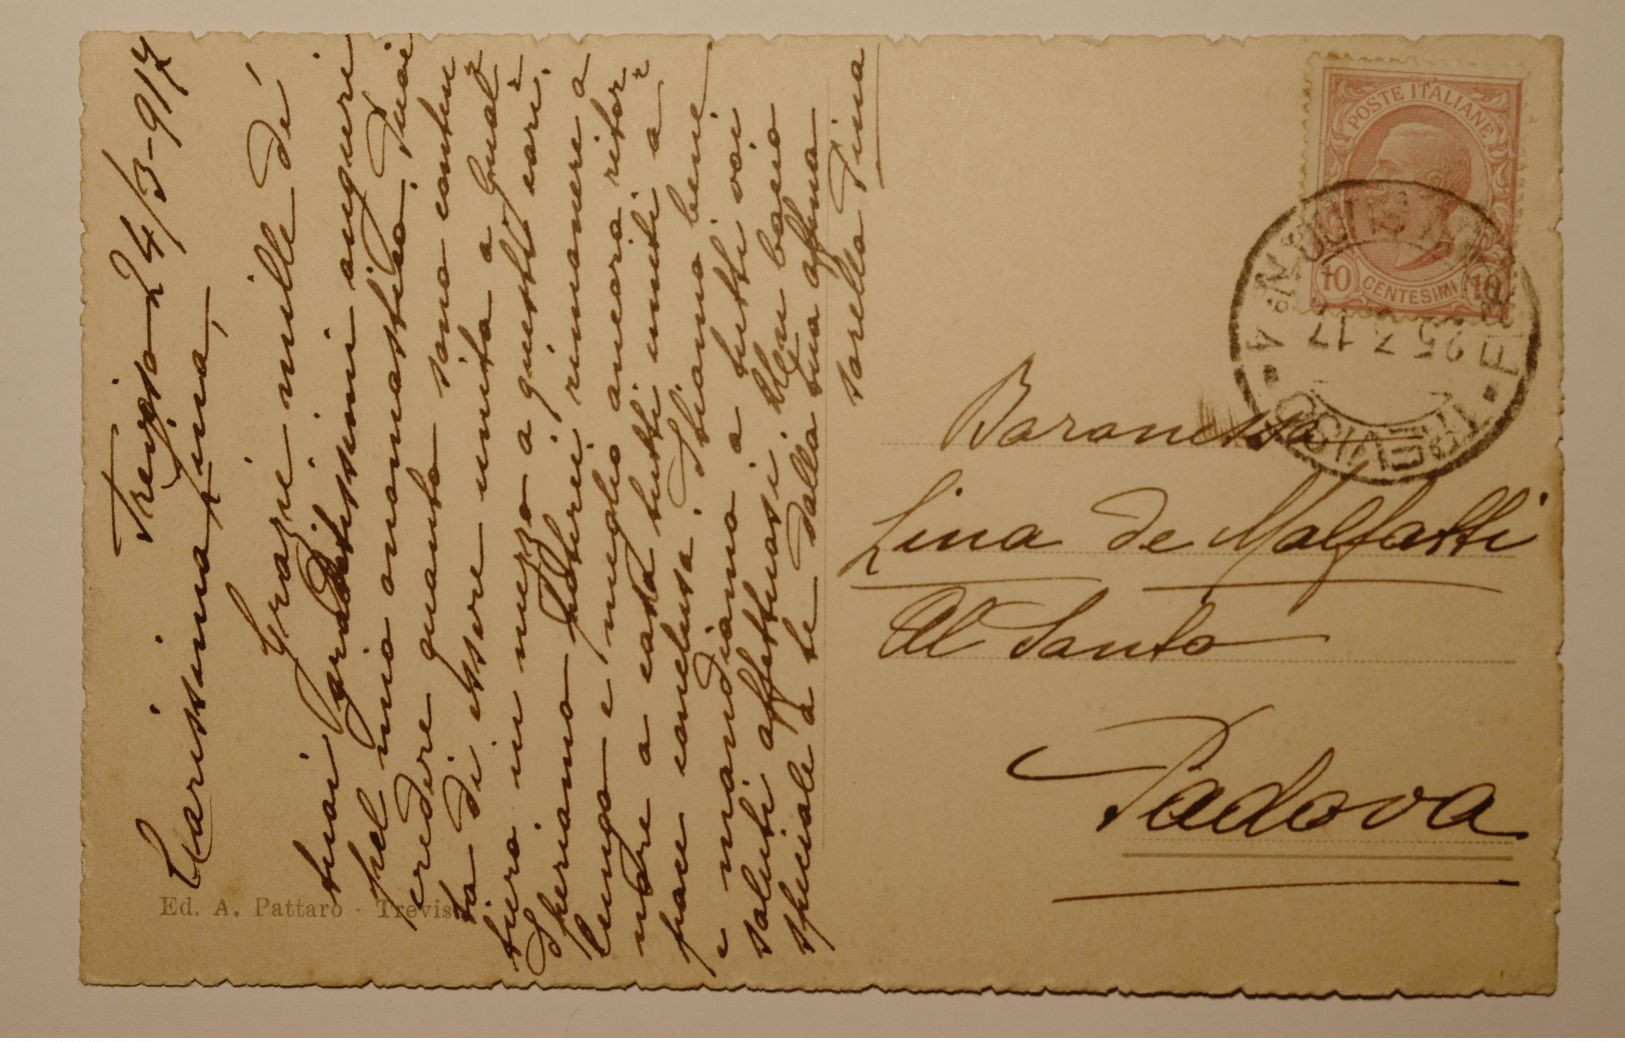 Treviso 24/3-917
Carissima Lina,
Grazie mille dei
tuoi graditissimi auguri
pel mio onomastico. Puoi
credire quanto sono conten
ta di essere unita a Gual=
tiero in mezzo a questi cari.
Speriamo potervi rimanere a
lungo e meglio ancora ritor=
nare a casa tutti uniti a
pace conclusa. Stiamo bene
e mandiamo a tutti voi
saluti affettuosi. Un bacio
speciale a te dalla tua affma
sorella Pina
Ed. A. Pattaro - Treviso
POSTE ITALIANE
10 CENTESIMI 10
TREVISO
25.7.17
Baronessa
Lina de Malfatti
Al Santo
Padova